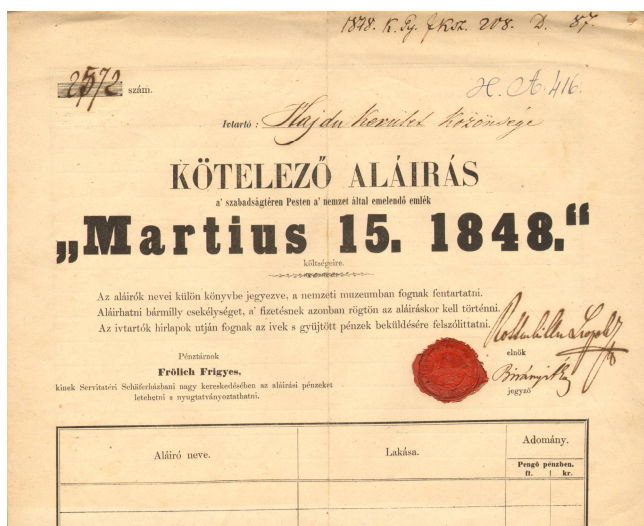 1848. K. Gy. fksz. 208. D. 87.
2572 szám.
H. A. 416.
Ivtartó : Hajdu Kerület Közönsége
KÖTELEZŐ ALÁIRÁS
a' szabadságtéren Pesten a' nemzet által emelendő emlék
„Martius 15. 1848.“
költségeire.
Az aláirók nevei külön könyvbe jegyezve, a nemzeti muzeumban fognak fentartatni.
Aláirhatni bármilly csekélységet, a' fizetésnek azonban rögtön az aláiráskor kell történni.
Az ivtartók hirlapok utján fognak az ivek s gyüjtött pénzek beküldésére felszólittatni.
Rottenbiller Lipót
elnök
jegyző
Pénztárnok
Frölich Frigyes,
kinek Servitatéri Schäferházbani nagy kereskedésében az aláirási pénzeket
letehetni s nyugtatványoztathatni.
Aláiró neve.
Lakása.
Adomány.
Pengő pénzben.
ft. kr.